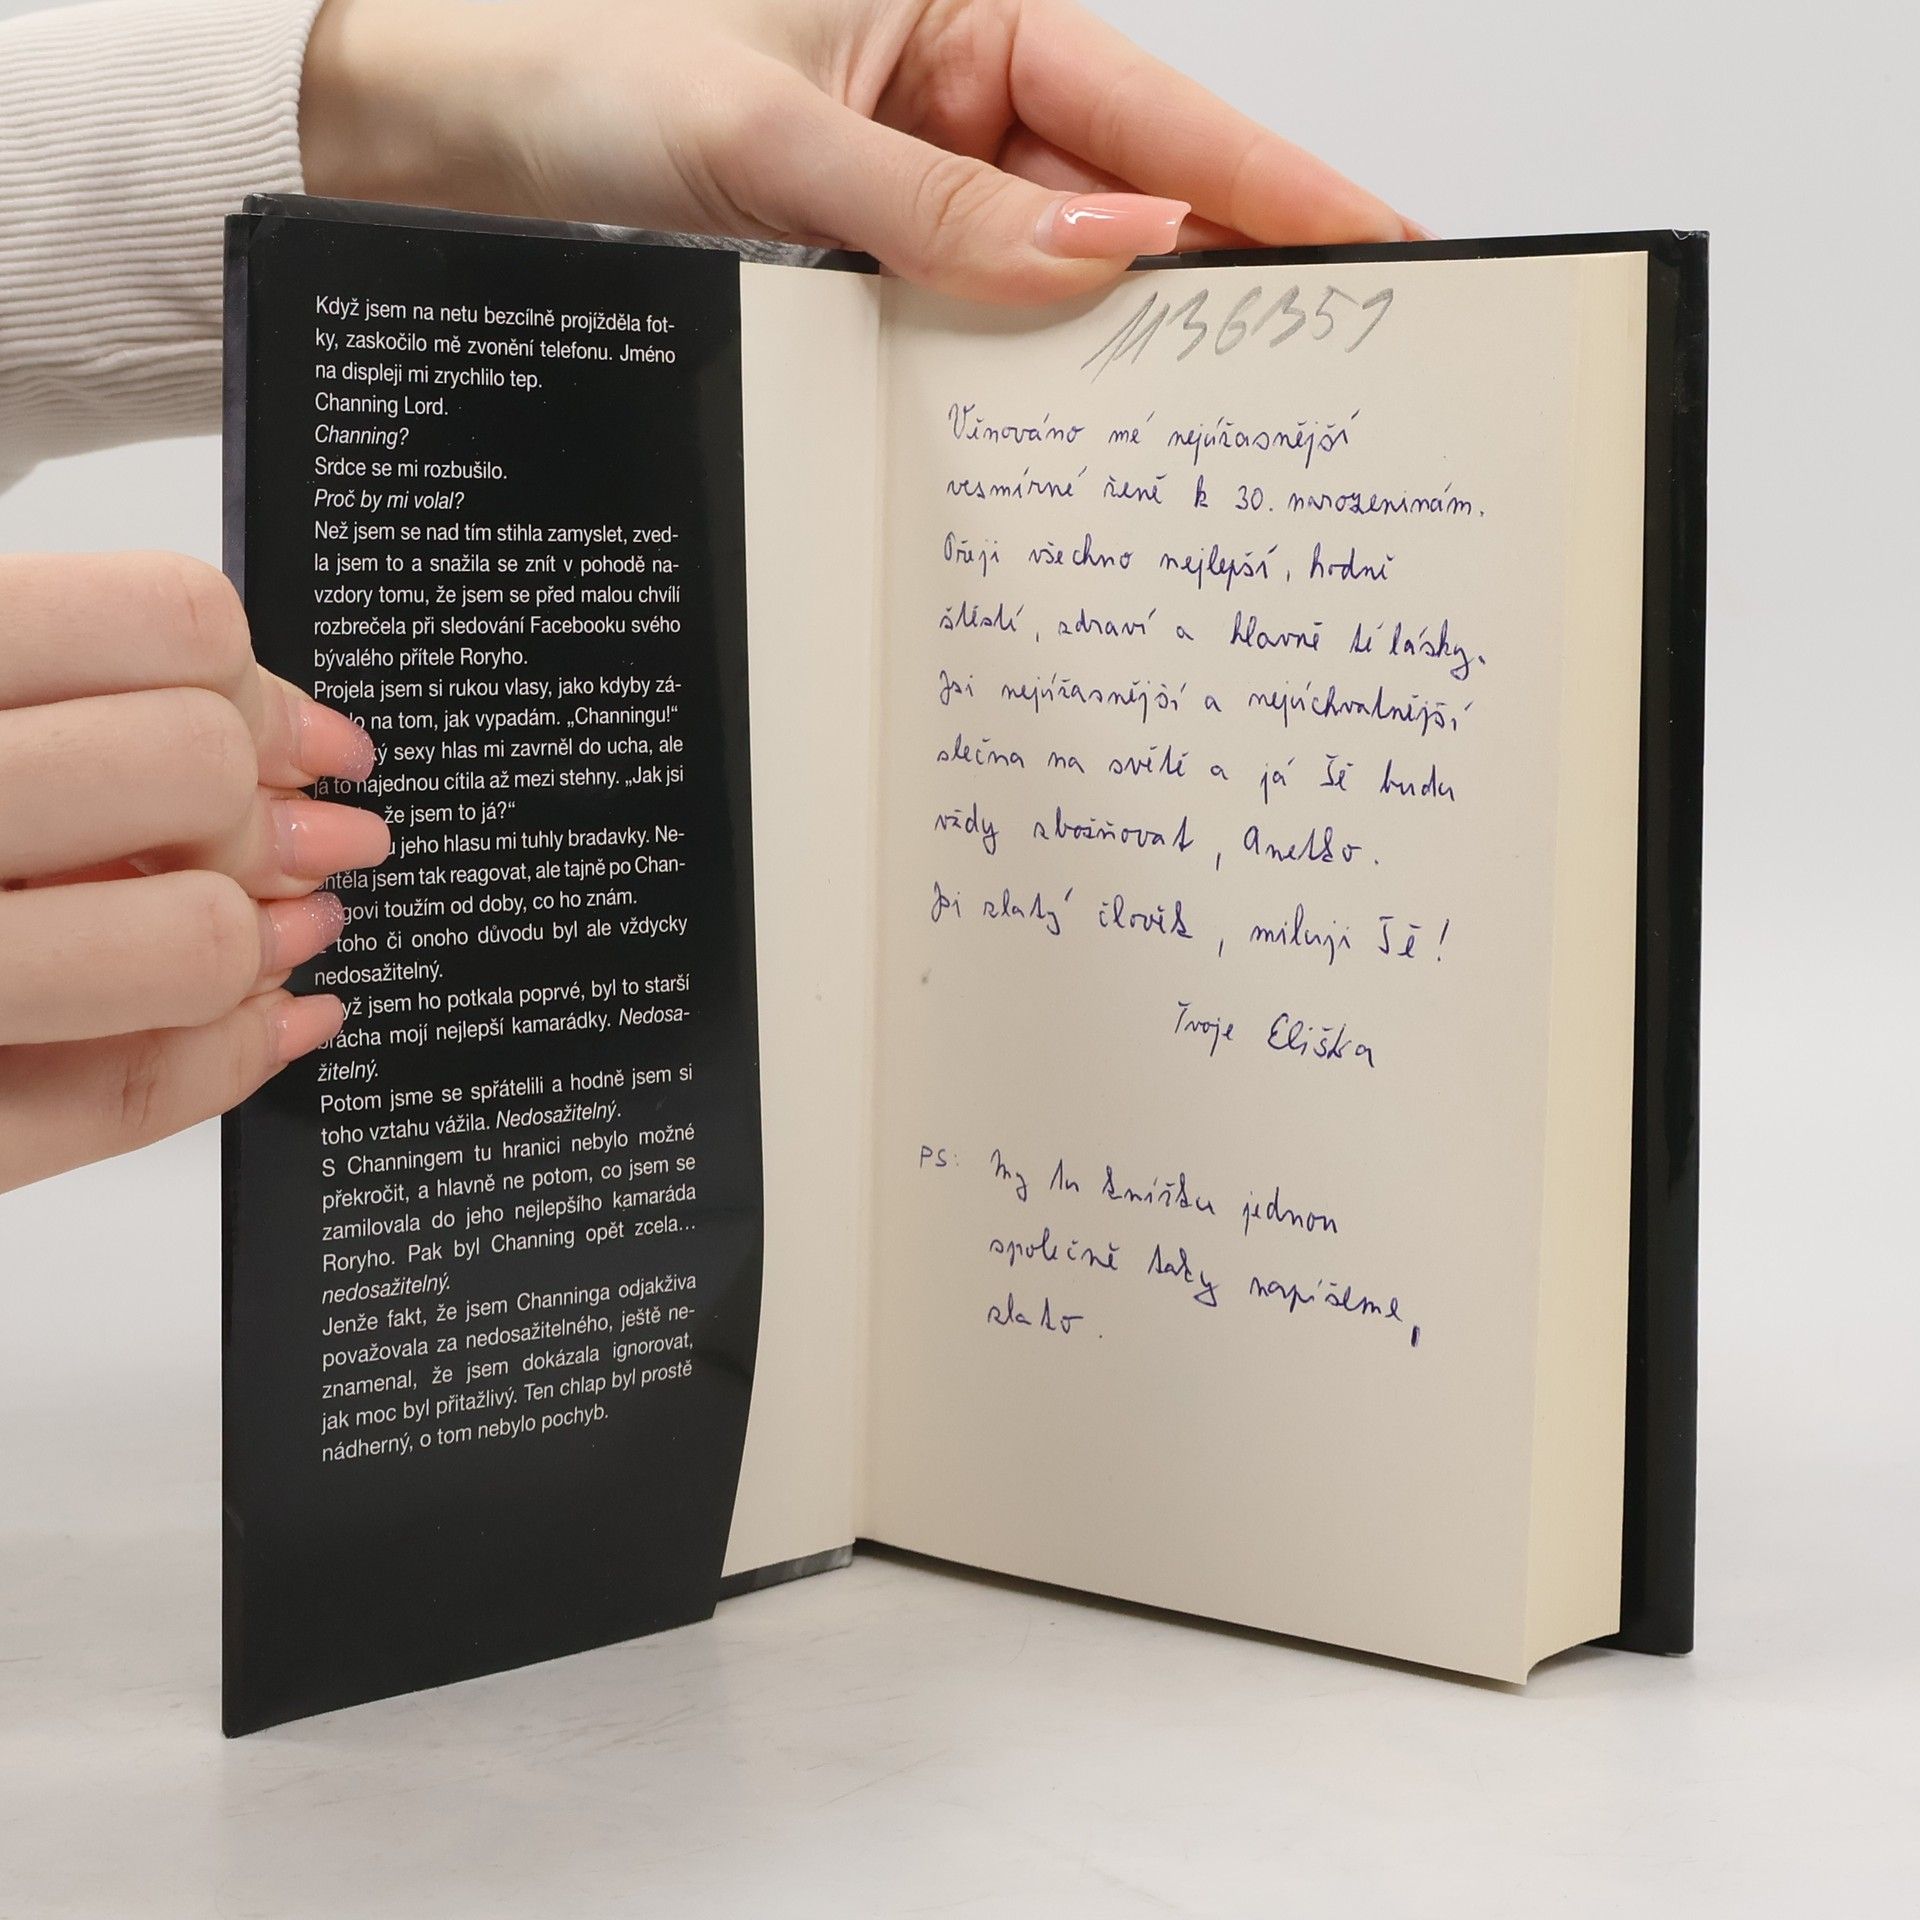 Když jsem na netu bezcílně projížděla fot-
ky, zaskočilo mě zvonění telefonu. Jméno
na displeji mi zrychlilo tep.
Channing Lord.
Channing?
Srdce se mi rozbušilo.
Proč by mi volal?
Než jsem se nad tím stihla zamyslet, zved-
la jsem to a snažila se znít v pohodě na-
vzdory tomu, že jsem se před malou chvílí
rozbrečela při sledování Facebooku svého
bývalého přítele Roryho.
Projela jsem si rukou vlasy, jako kdyby zá-
na tom, jak vypadám. „Channingu!“
sexy hlas mi zavrněl do ucha, ale
já to najednou cítila až mezi stehny. „Jak jsi
že jsem to já?“
jeho hlasu mi tuhly bradavky. Ne-
chtěla jsem tak reagovat, ale tajně po Chan-
govi toužím od doby, co ho znám.
toho či onoho důvodu byl ale vždycky
nedosažitelný.
yž jsem ho potkala poprvé, byl to starší
brácha mojí nejlepší kamarádky. Nedosa-
žitelný.
Potom jsme se spřátelili a hodně jsem si
toho vztahu vážila. Nedosažitelný.
S Channingem tu hranici nebylo možné
překročit, a hlavně ne potom, co jsem se
zamilovala do jeho nejlepšího kamaráda
Roryho. Pak byl Channing opět zcela...
nedosažitelný.
Jenže fakt, že jsem Channinga odjakživa
považovala za nedosažitelného, ještě ne-
znamenal, že jsem dokázala ignorovat,
jak moc byl přitažlivý. Ten chlap byl prostě
nádherný, o tom nebylo pochyb.
1136359
Věnováno mé nejúžasnější
vesmírné ženě k 30. narozeninám.
Přeji všechno nejlepší, hodně
štěstí, zdraví a hlavně té lásky.
Jsi nejúžasnější a nejúchvatnější
slečna na světě a já Tě budu
vždy zbožňovat, Anetko.
Jsi zlatý člověk, miluji Tě!
Tvoje Eliška
PS: My tu knížku jednou
společně taky napíšeme,
zlato.